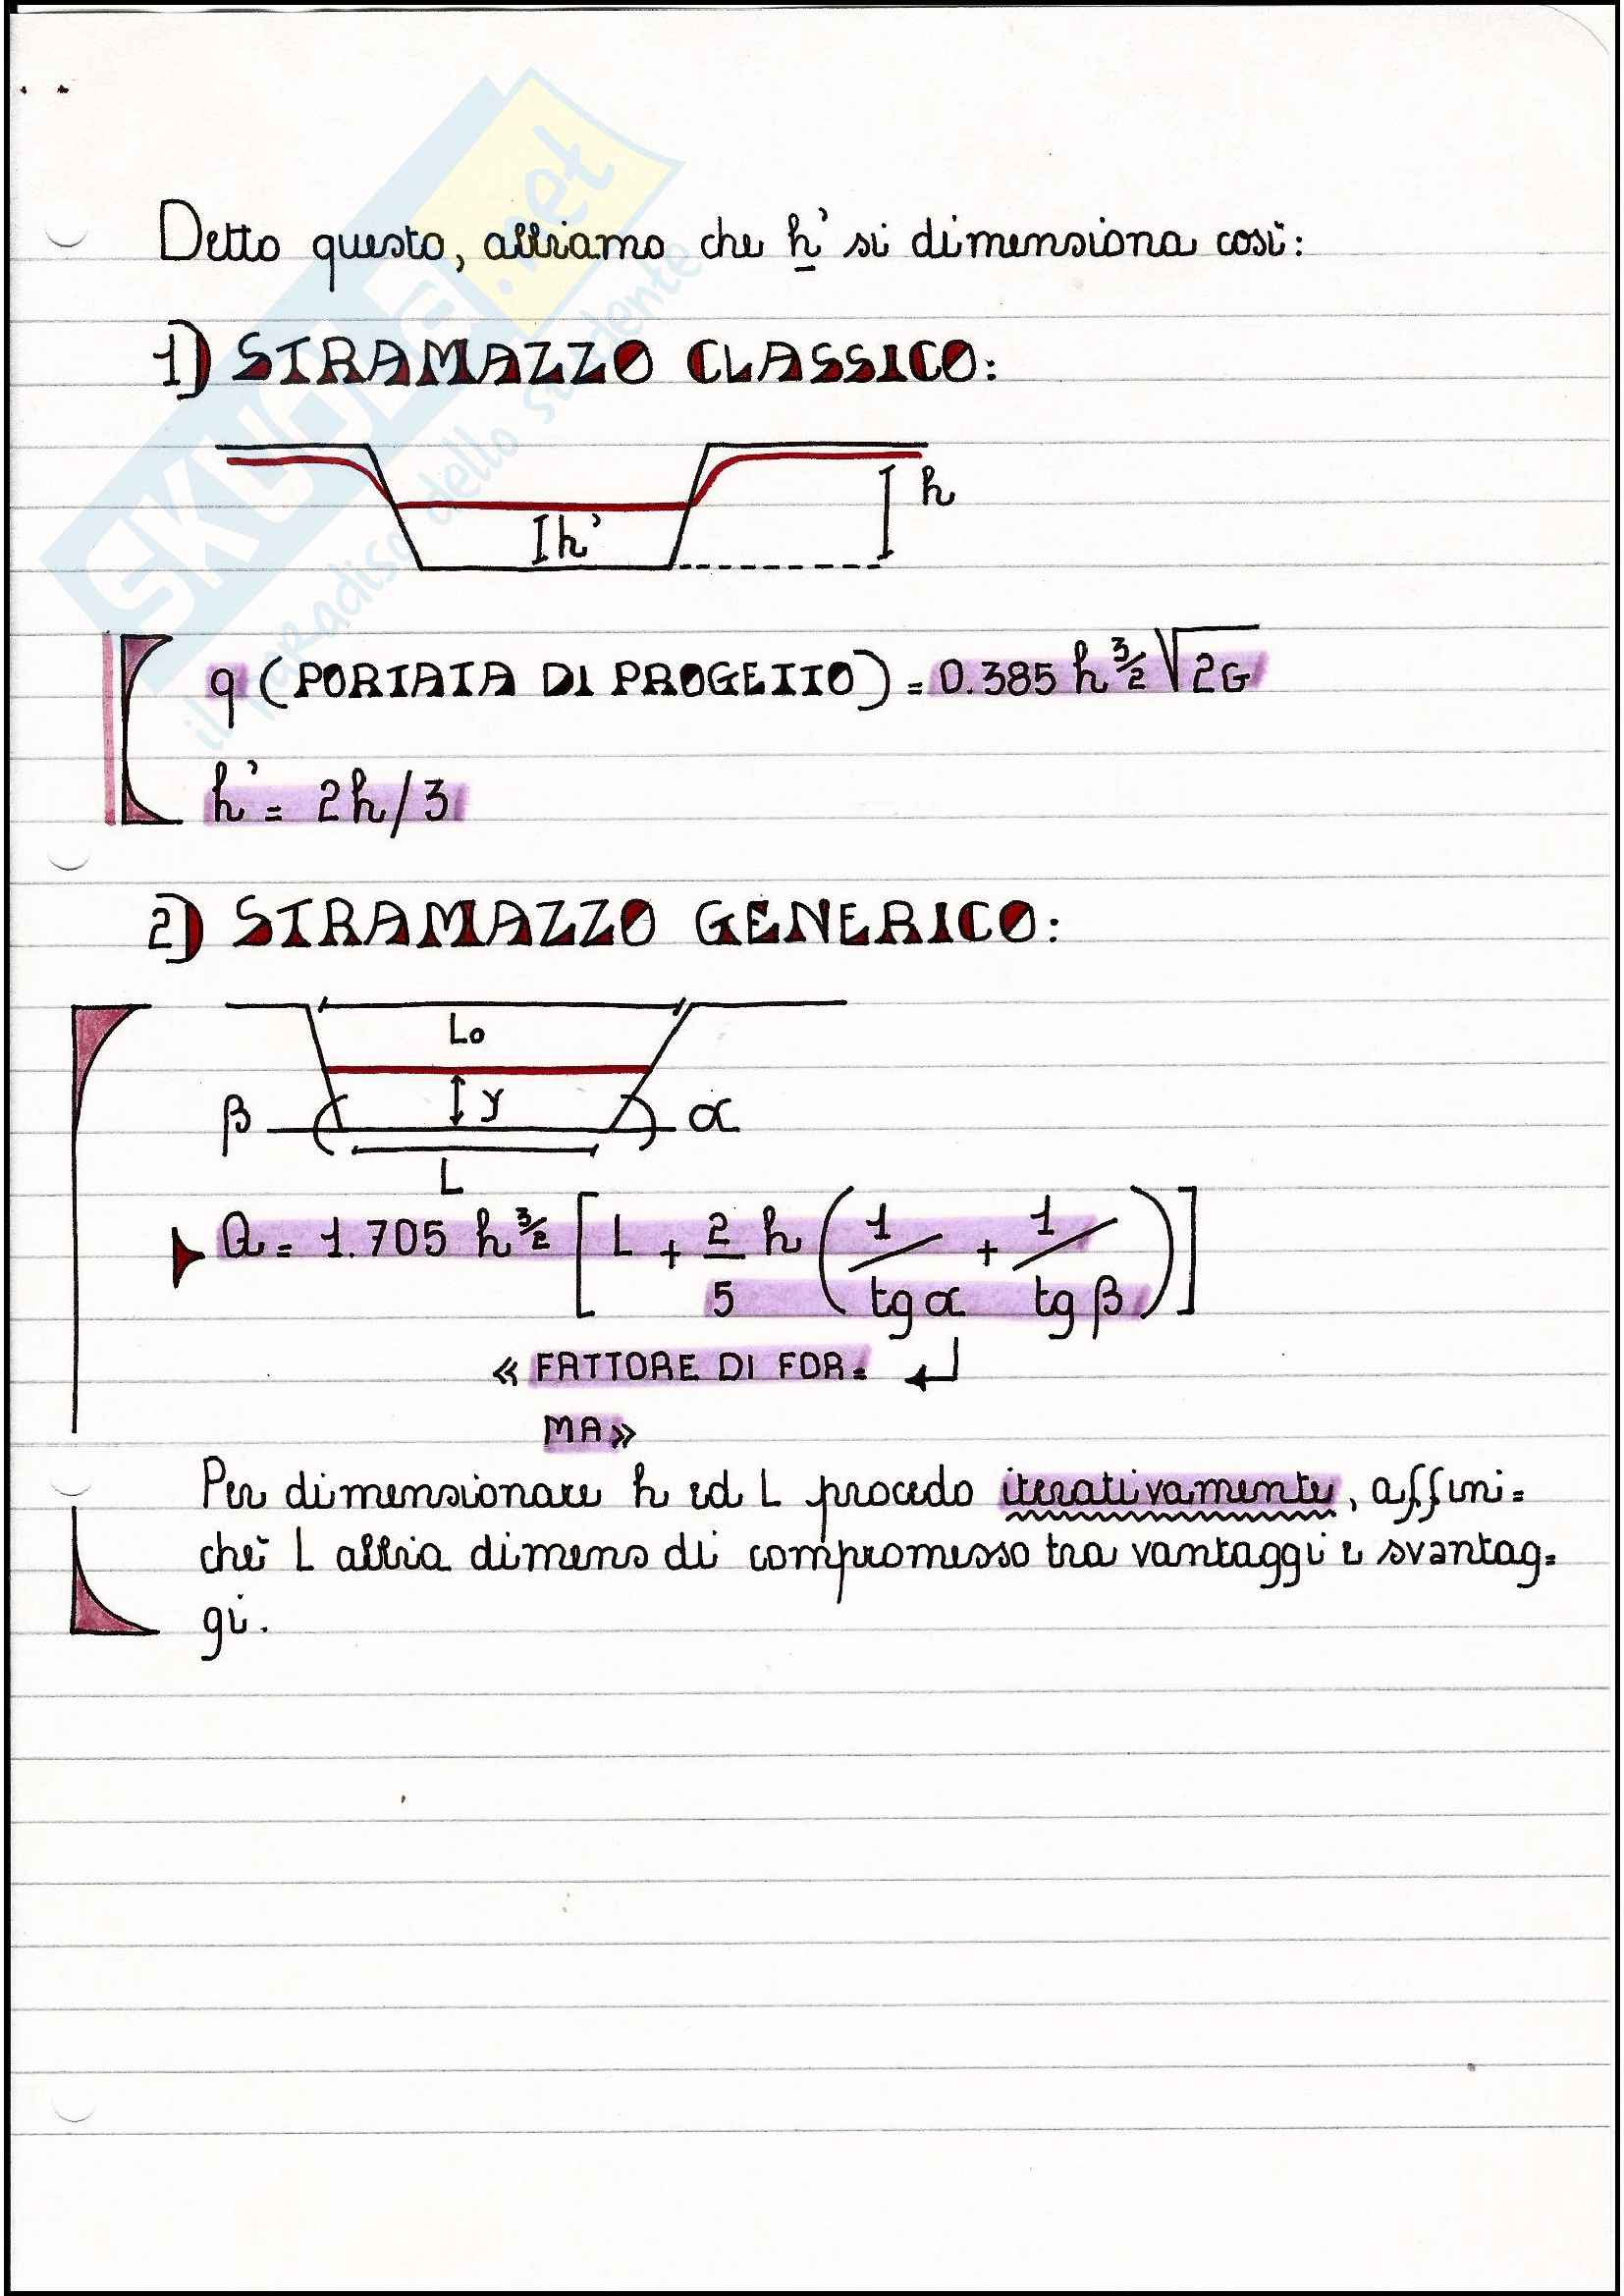 Detto questo, abbiamo che h' si dimensiona così:
1) STRAMAZZO CLASSICO:
h
h'
q (PORTATA DI PROGETTO) = 0.385 h^3/2 √2G
h' = 2h/3
2) STRAMAZZO GENERICO:
Lo
y
β
α
L
Q = 1.705 h^3/2 [L + 2/5 h (1/tgα + 1/tgβ)]
« FATTORE DI FOR=
MA»
Per dimensionare h ed L procedo iterativamente, affini=
chè L abbia dimens di compromesso tra vantaggi e svantag=
gi.
SKUOLA.net
il paradiso dello studente